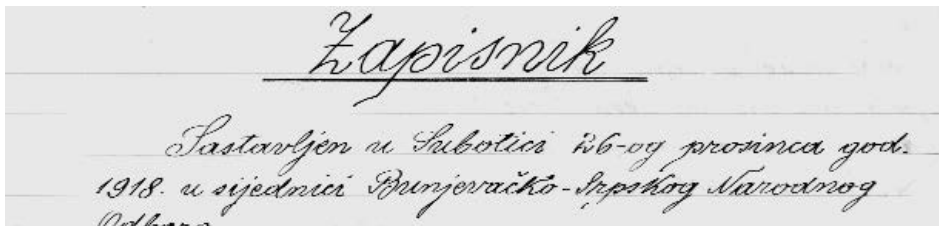 Zapisnik
Sastavljen u Subotici 26-og prosinca god.
1918. u sijednici Bunjevačko-Srpskog Narodnog
Odbora